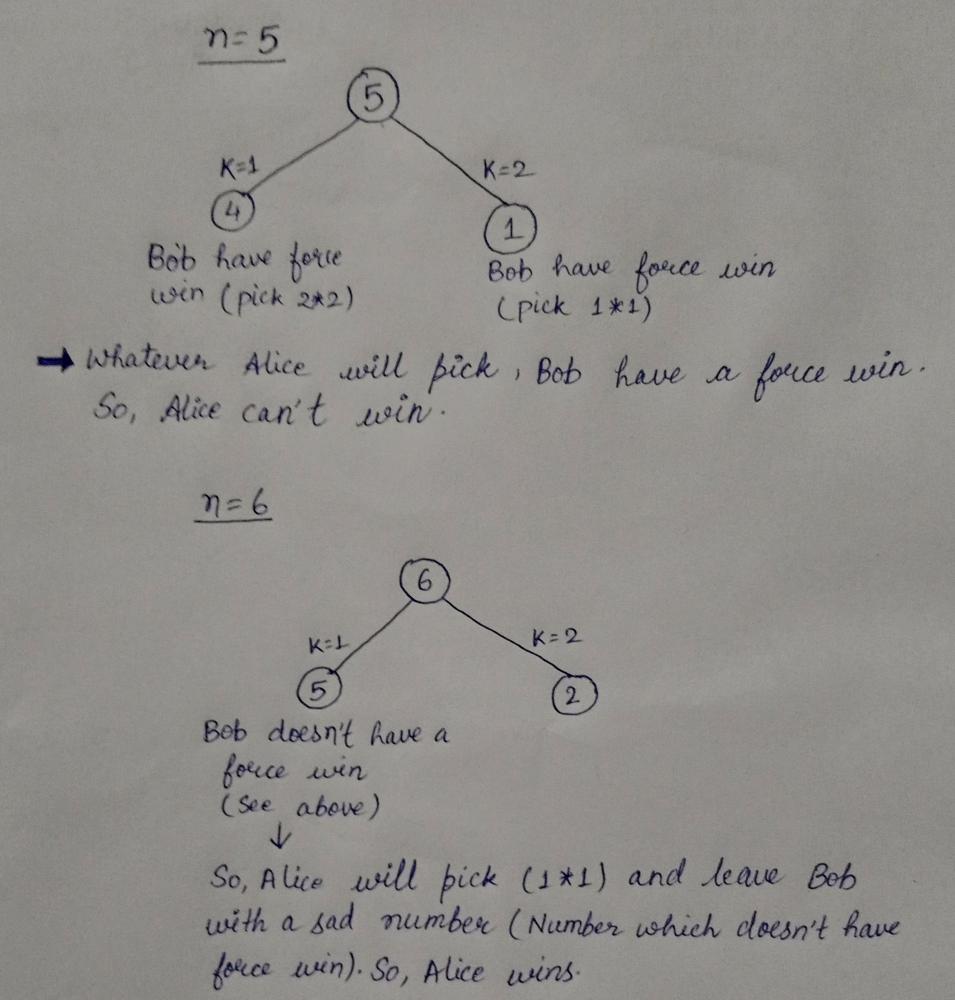 n=5
5
K=1 K=2
4 1
Bob have force
win (pick 2*2)
Bob have force win
(pick 1*1)
→ Whatever Alice will pick, Bob have a force win.
So, Alice can't win.
n=6
6
K=1 K=2
5 2
Bob doesn't have a
force win
(See above)
↓
So, Alice will pick (1*1) and leave Bob
with a sad number (Number which doesn't have
force win). So, Alice wins.